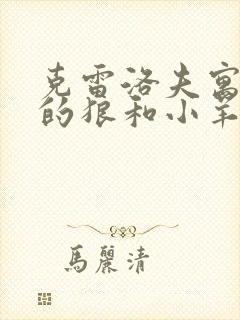 克雷洛夫寓
的狼和小羊
馬麗清